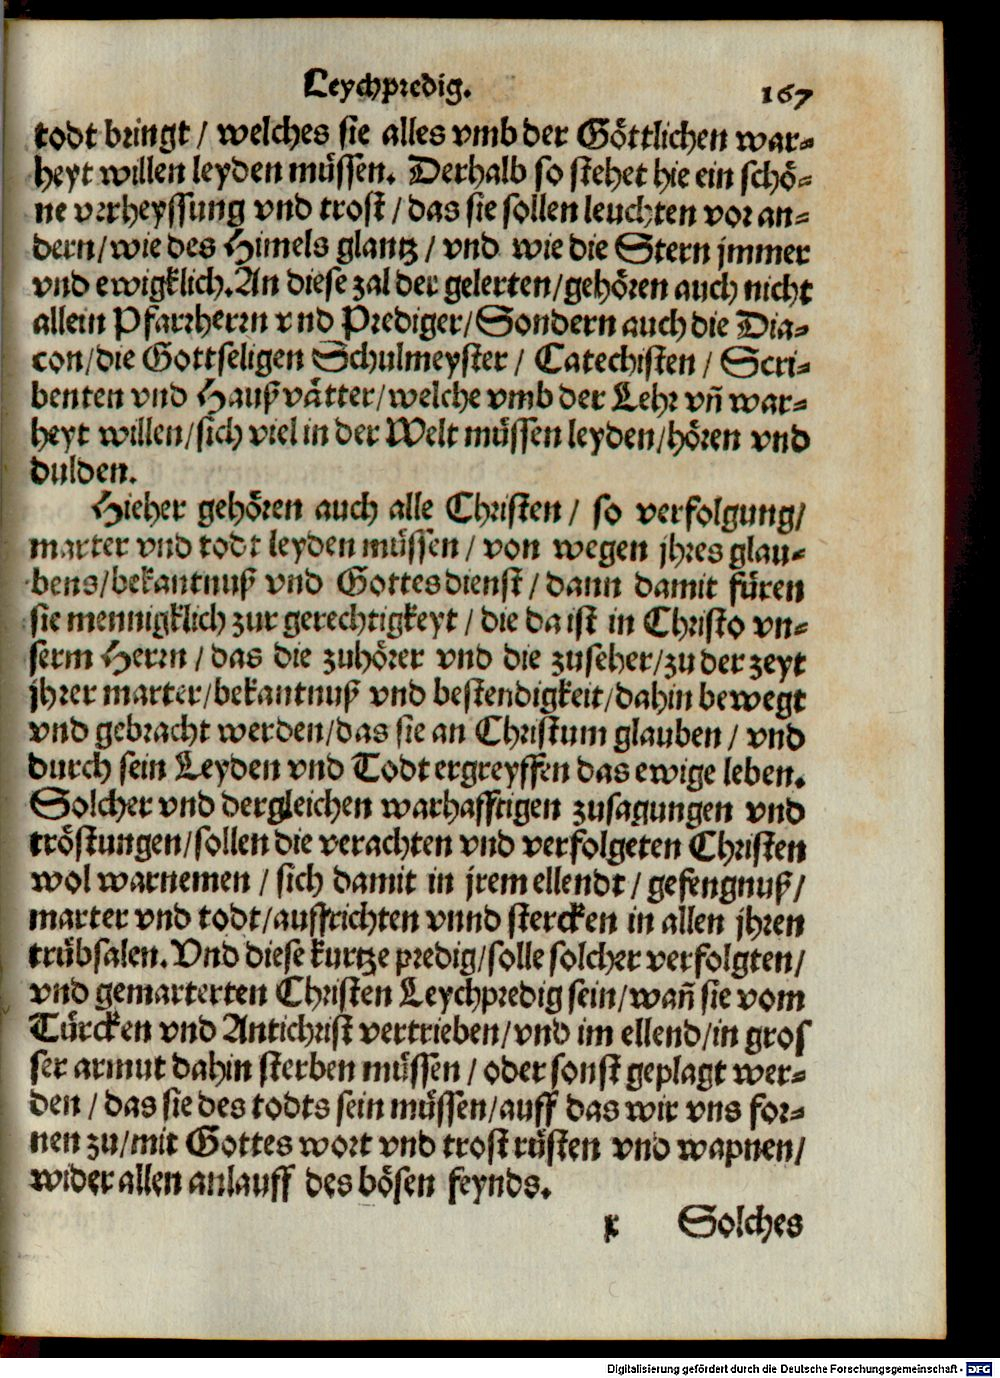 Leychpredig. 167
todt bringt / welches sie alles vmb der Göttlichen war-
heyt willen leyden müssen. Derhalb so stehet hie ein schö-
ne verheyssung vnd trost / das sie sollen leuchten vor an-
dern / wie des Himels glantz / vnd wie die Stern jmmer
vnd ewigklich. An diese zal der gelerten / gehören auch nicht
allein Pfarrherrn vnd Prediger / Sondern auch die Dia-
con / die Gottseligen Schulmeyster / Catechisten / Scri-
benten vnd Haußvätter / welche vmb der Lehr vñ war-
heyt willen / sich viel in der Welt müssen leyden / hören vnd
dulden.
Hieher gehören auch alle Christen / so verfolgung /
marter vnd todt leyden müssen / von wegen jhres glau-
bens / bekantnuß vnd Gottesdienst / dann damit füren
sie mennigklich zur gerechtigkeyt / die da ist in Christo vn-
serm Herrn / das die zuhörer vnd die zuseher / zu der zeyt
jhrer marter / bekantnuß vnd bestendigkeit / dahin bewegt
vnd gebracht werden / das sie an Christum glauben / vnd
durch sein Leyden vnd Todt ergreyffen das ewige leben.
Solcher vnd dergleichen warhafftigen zusagungen vnd
tröstungen / sollen die verachten vnd verfolgeten Christen
wol warnemen / sich damit in jrem ellendt / gefengnuß /
marter vnd todt / auffrichten vnnd stercken in allen jhren
trübsalen. Vnd diese kurtze predig / solle solcher verfolgten /
vnd gemarterten Christen Leychpredig sein / wañ sie vom
Türcken vnd Antichrist vertrieben / vnd im ellend / in gros
ser armut dahin sterben müssen / oder sonst geplagt wer-
den / das sie des todts sein müssen / auff das wir vns for-
nen zu / mit Gottes wort vnd trost rüsten vnd wapnen /
wider allen anlauff des bösen feynds.
x Solches
Digitalisierung gefördert durch die Deutsche Forschungsgemeinschaft - DFG